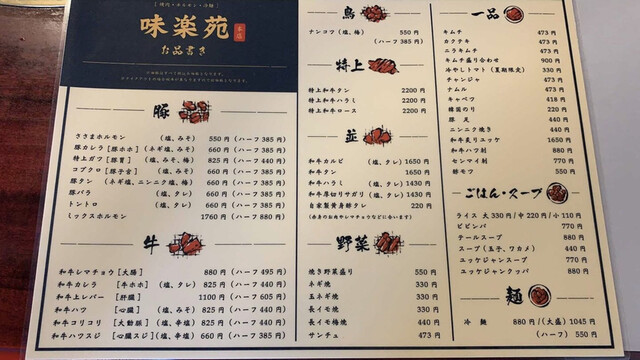 [焼肉・ホルモン・冷麺]
味楽苑
本店
お品書き
豚
ささまホルモン (塩、みそ) 550円 (ハーフ385円)
豚カレラ [豚ホホ] (ネギ塩、みそ) 660円 (ハーフ385円)
特上ガツ [豚胃] (塩、みそ、椿) 825円 (ハーフ440円)
コブクロ [豚子宮] (塩、みそ) 660円 (ハーフ385円)
豚タン (ネギ塩、ニンニク塩、椿) 660円 (ハーフ385円)
豚バラ (塩、タレ) 660円 (ハーフ385円)
トントロ (塩、タレ) 660円 (ハーフ385円)
ミックスホルモン 1760円 (ハーフ880円)
牛
和牛レマチョウ [大腸] 880円 (ハーフ495円)
和牛カレラ [牛ホホ] (塩、タレ) 825円 (ハーフ440円)
和牛上レバー [肝臓] 1100円 (ハーフ605円)
和牛ハツ [心臓] (塩、みそ) 825円 (ハーフ440円)
和牛コリコリ [大動脈] (塩、辛塩) 660円 (ハーフ385円)
和牛ハツスジ [心臓スジ] (塩、辛塩) 660円 (ハーフ385円)
鳥
ナンコツ (塩、椿) 550円
(ハーフ385円)
特上
特上和牛タン 2200円
特上和牛ハラミ 2200円
特上和牛ロース 2200円
並
和牛カルビ (塩、タレ) 1650円
和牛タン 1650円
和牛ハラミ (塩、タレ) 1430円
和牛厚切りサガリ (塩、タレ) 1430円
自家製黄身酢タレ 220円
(赤身のお肉やレマチョウなどに合います)
野菜
焼き野菜盛り 550円
ネギ焼 330円
玉ネギ焼 330円
長イモ焼 330円
長イモ梅焼 440円
サンチュ 440円
一品
キムチ 473円
カクテキ 473円
ニラキムチ 473円
キムチ盛り合わせ 900円
冷やしトマト (夏期限定) 330円
チャンジャ 473円
ナムル 473円
キャベツ 418円
韓国のり 220円
豚足 440円
ニンニク焼き 440円
和牛炙りユッケ 1650円
和牛ハツ刺 880円
センマイ刺 770円
酢モツ 550円
ごはん・スープ
ライス 大330円/中220円/小110円
ビビンバ 770円
テールスープ 880円
スープ(玉子、ワカメ) 440円
ユッケジャンスープ 550円
ユッケジャンクッパ 880円
麺
冷麺 880円/(大盛)1045円
(ハーフ) 550円